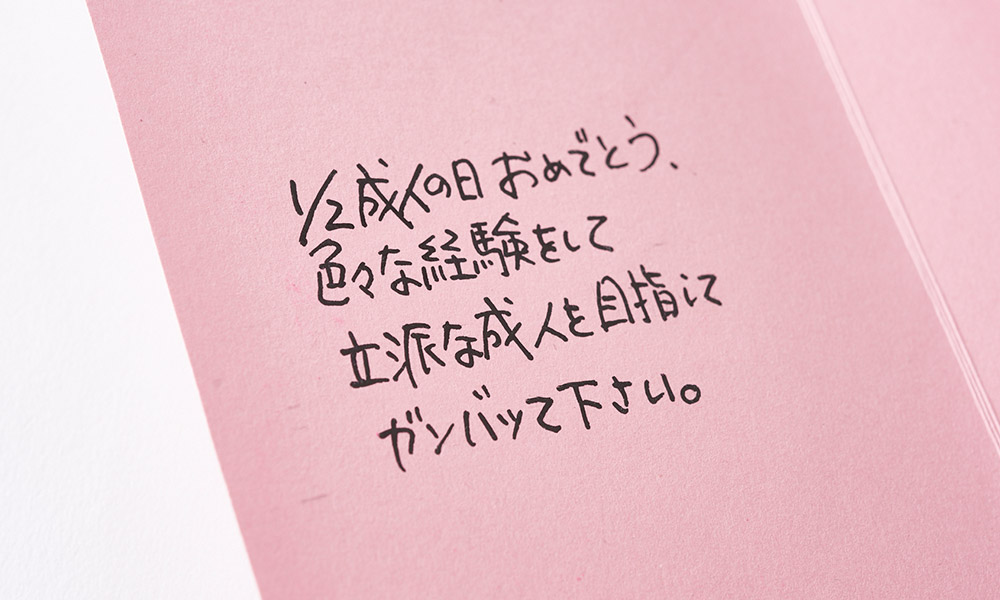 1/2成人の日おめでとう、
色々な経験をして
立派な成人を目指して
ガンバッて下さい。